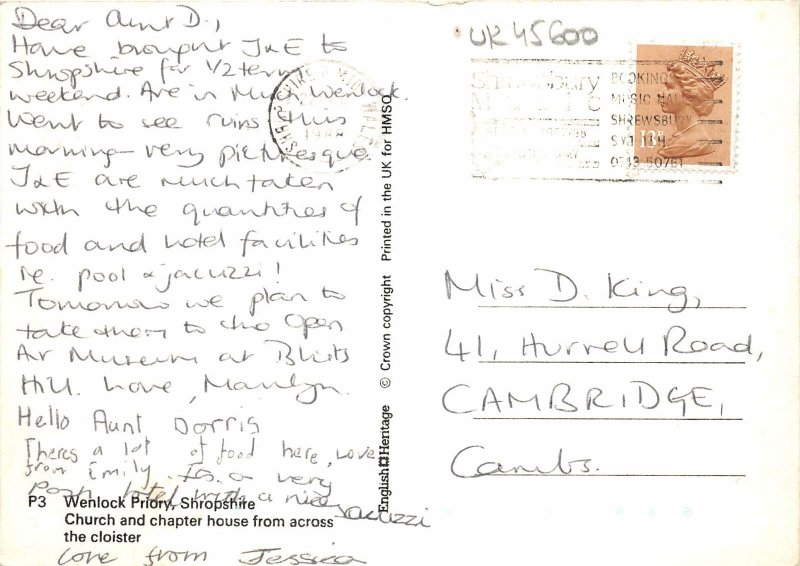 Dear Aunt D.,
Have brought J&E to
Shropshire for 1/2 term
weekend. Are in Much Wenlock.
Went to see ruins this
morning - very picturesque.
J&E are much taken
with the quantities of
food and hotel facilities
ie. pool & jacuzzi!
Tomorrow we plan to
take them to the Open
Air Museum at Blists
Hill. Love, Marilyn.
Hello Aunt Dorris
Theres a lot of food here, love
from Emily. Its a very
posh hotel with a nice
jacuzzi
love from Jessica
P3 Wenlock Priory, Shropshire
Church and chapter house from across
the cloister
English Heritage © Crown copyright Printed in the UK for HMSO
UK45600
Shrewsbury
BOOKING
MUSIC HALL
SHREWSBURY
SY1 1LH
0743 50761
13P
Miss D. King,
41, Hurrell Road,
CAMBRIDGE,
Cambs.